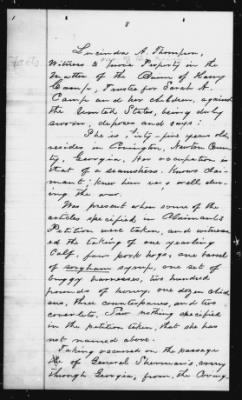 8
Lucinda A. Thompson,
Witness to prove Property in the
matter of the Claim of Henry
Camp, Trustee for Sarah A.
Camp and her children, against
the United States, being duly
sworn, deposes and says:
She is fifty-five years old,
resides in Covington, Newton Coun-
ty, Georgia. Her occupation is
that of a seamstress. Knows claim-
ant; knew him very well dur-
ing the war.
Was present when some of the
articles specified in Claimant's
Petition were taken, and witness-
ed the taking of one yearling
Calf, four pork hogs, one barrel
of sorghum syrup, one set of
buggy harness, two hundred
pounds of honey, one dozen chick-
ens, three counterpanes, and two
coverlets. Saw nothing specified
in the petition taken, that she has
not named above.
Taking occurred on the passage
of General Sherman's army
through Georgia, from the